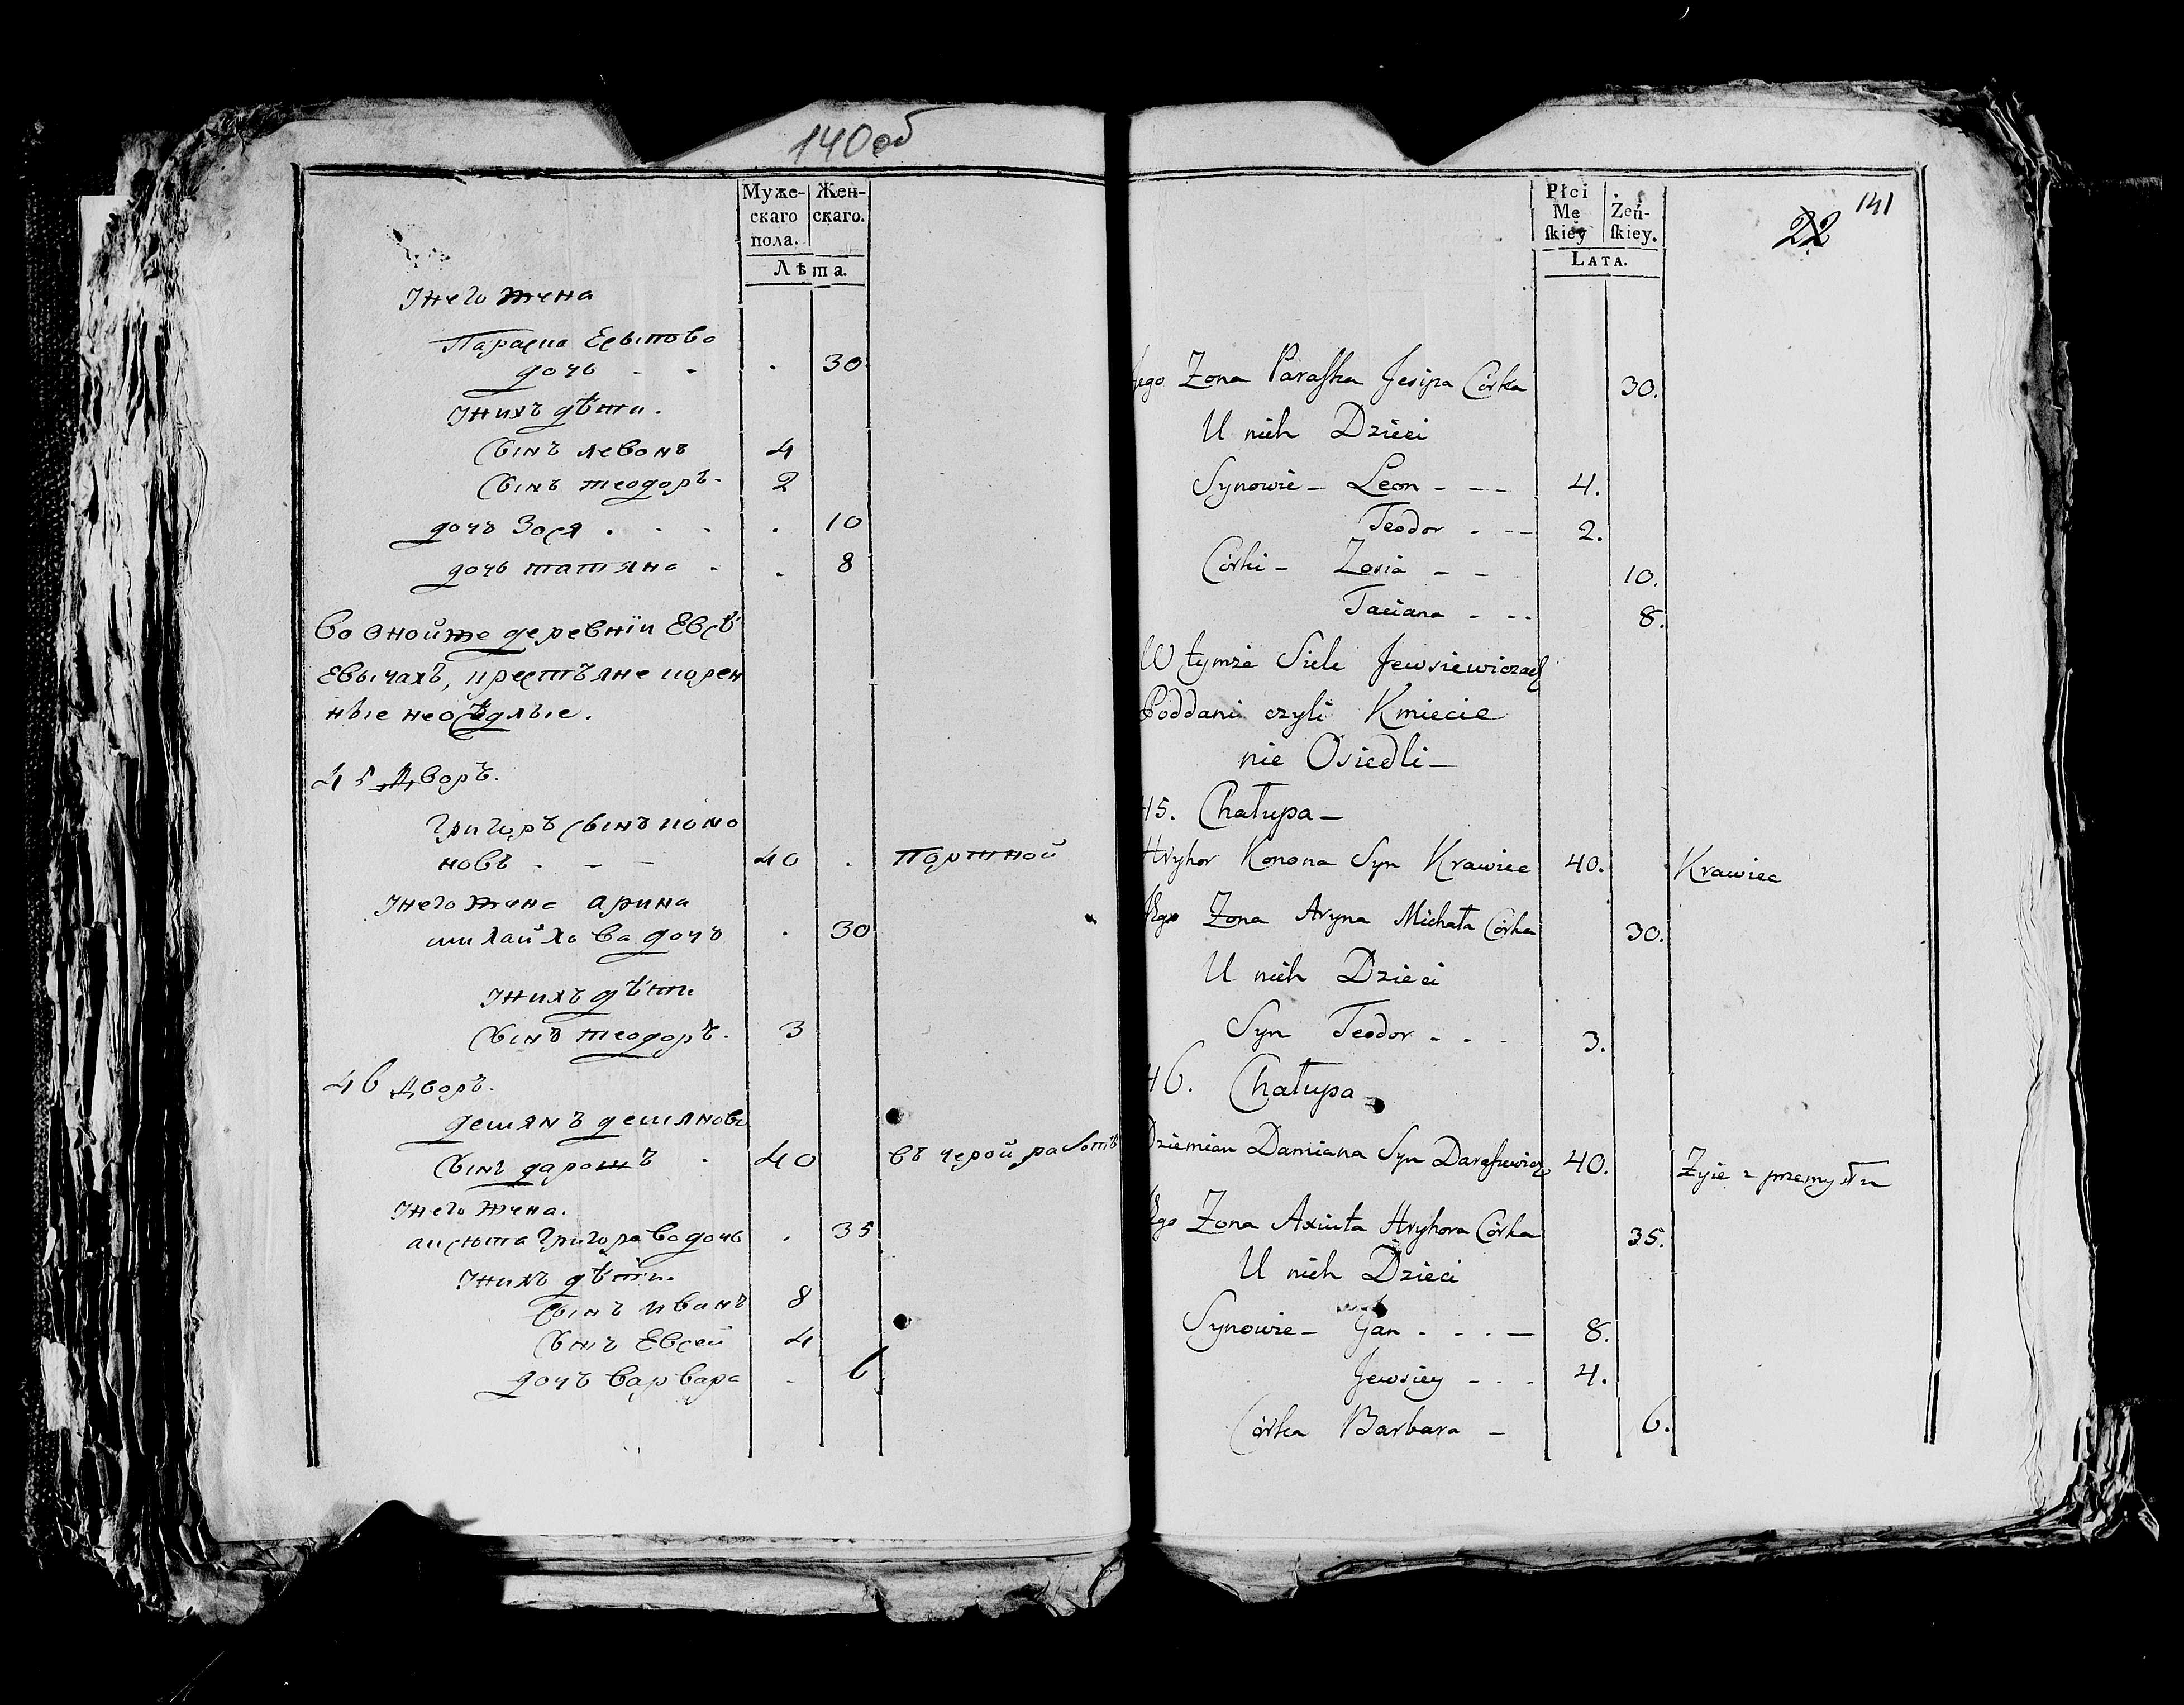 140 об
Муже- Жен-
скаго скаго.
пола.
Лѣта.
Унего жена
Параска Есыпова
дочь - - . 30
Унихъ дѣти.
Сынъ левонъ 4
Сынъ теодоръ - 2
дочъ Зося . - - . 10
дочь татяна - . 8
Во онойже деревнїи Евсѣ
Евычахъ, крестъяне корен
ные неосѣдлые.
45 Дворъ.
Григоръ Сынъ коно
новъ - - - 40 . Портной
Унего жена арина
михайлова дочъ . 30
Унихъ дѣти
Сынъ теодоръ. 3
46 Дворъ.
демянъ демяновъ
Сынъ дарошъ . 40 въ черой работѣ
Унего жена.
аксюта григорова дочь . 35
Унихъ дѣти.
Сынъ иванъ 8
Сынъ Евсей 4
дочъ варвара - 6
141
22
Płci
Mę Żeń-
ſkiey ſkiey.
LATA.
Jego Zona Paraſka Jesipa Córka 30.
U nich Dzieci
Synowie - Leon - - - 4.
Teodor - - - 2.
Córki - Zosia - - - 10.
Taciana - - - 8.
W tymże Siele Jewsiewiczach
Poddani czyli Kmiecie
nie Osiedli -
45. Chałupa -
Hryhor Konona Syn Krawiec 40. Krawiec
Jego Zona Aryna Michała Córka 30.
U nich Dzieci
Syn Teodor - - - 3.
46. Chałupa -
Dziemian Damiana Syn Daraſzewicz 40. Zyie z przemysłu
Jego Zona Axiuta Hryhora Córka 35.
U nich Dzieci
Synowie - Jan - - - 8.
Jewsiey - - - 4.
Córka Barbara - 6.